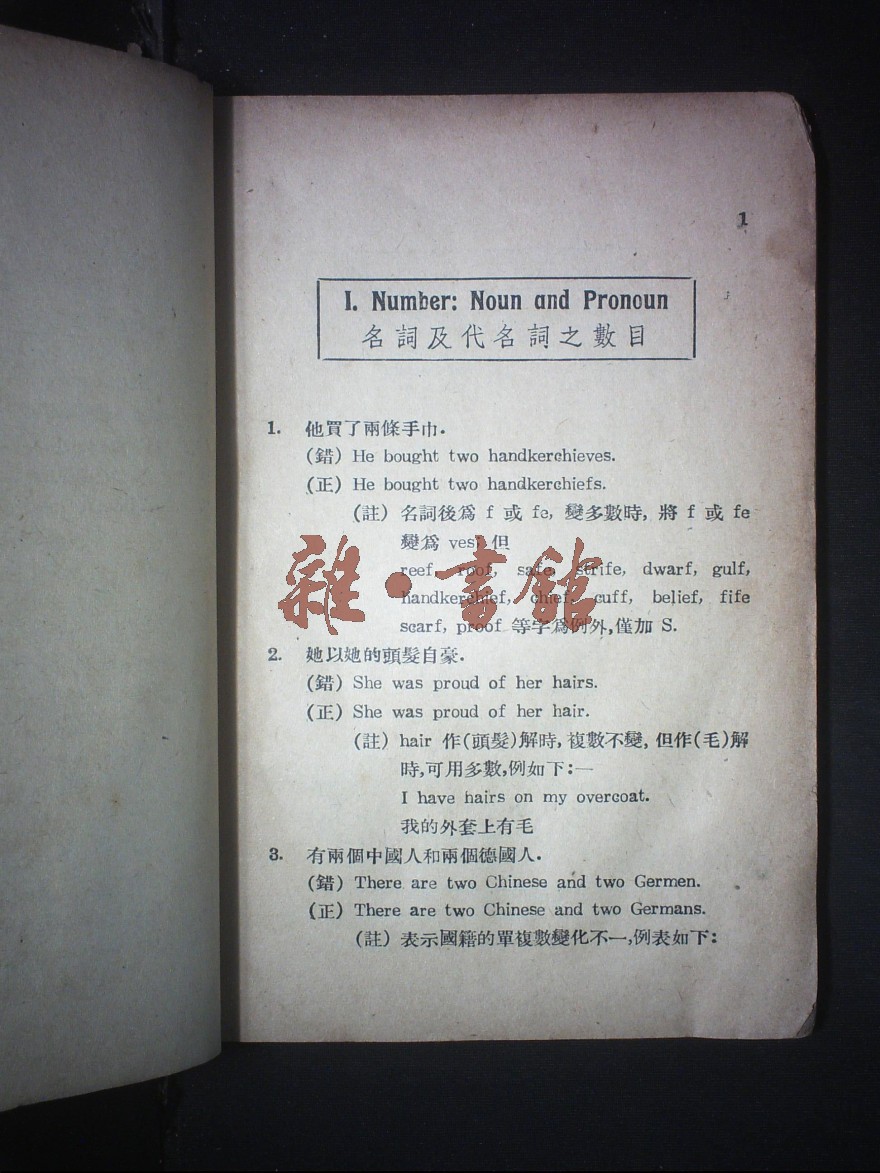 1
I. Number: Noun and Pronoun
名詞及代名詞之數目
1. 他買了兩條手巾.
(錯) He bought two handkerchieves.
(正) He bought two handkerchiefs.
(註) 名詞後爲 f 或 fe, 變多數時, 將 f 或 fe
變爲 ves; 但
reef, roof, safe, strife, dwarf, gulf,
handkerchief, chief, cuff, belief, fife
scarf, proof 等字爲例外,僅加 S.
雜·書館
2. 她以她的頭髮自豪.
(錯) She was proud of her hairs.
(正) She was proud of her hair.
(註) hair 作(頭髮)解時, 複數不變, 但作(毛)解
時,可用多數,例如下:—
I have hairs on my overcoat.
我的外套上有毛
3. 有兩個中國人和兩個德國人.
(錯) There are two Chinese and two Germen.
(正) There are two Chinese and two Germans.
(註) 表示國籍的單複數變化不一,例表如下: